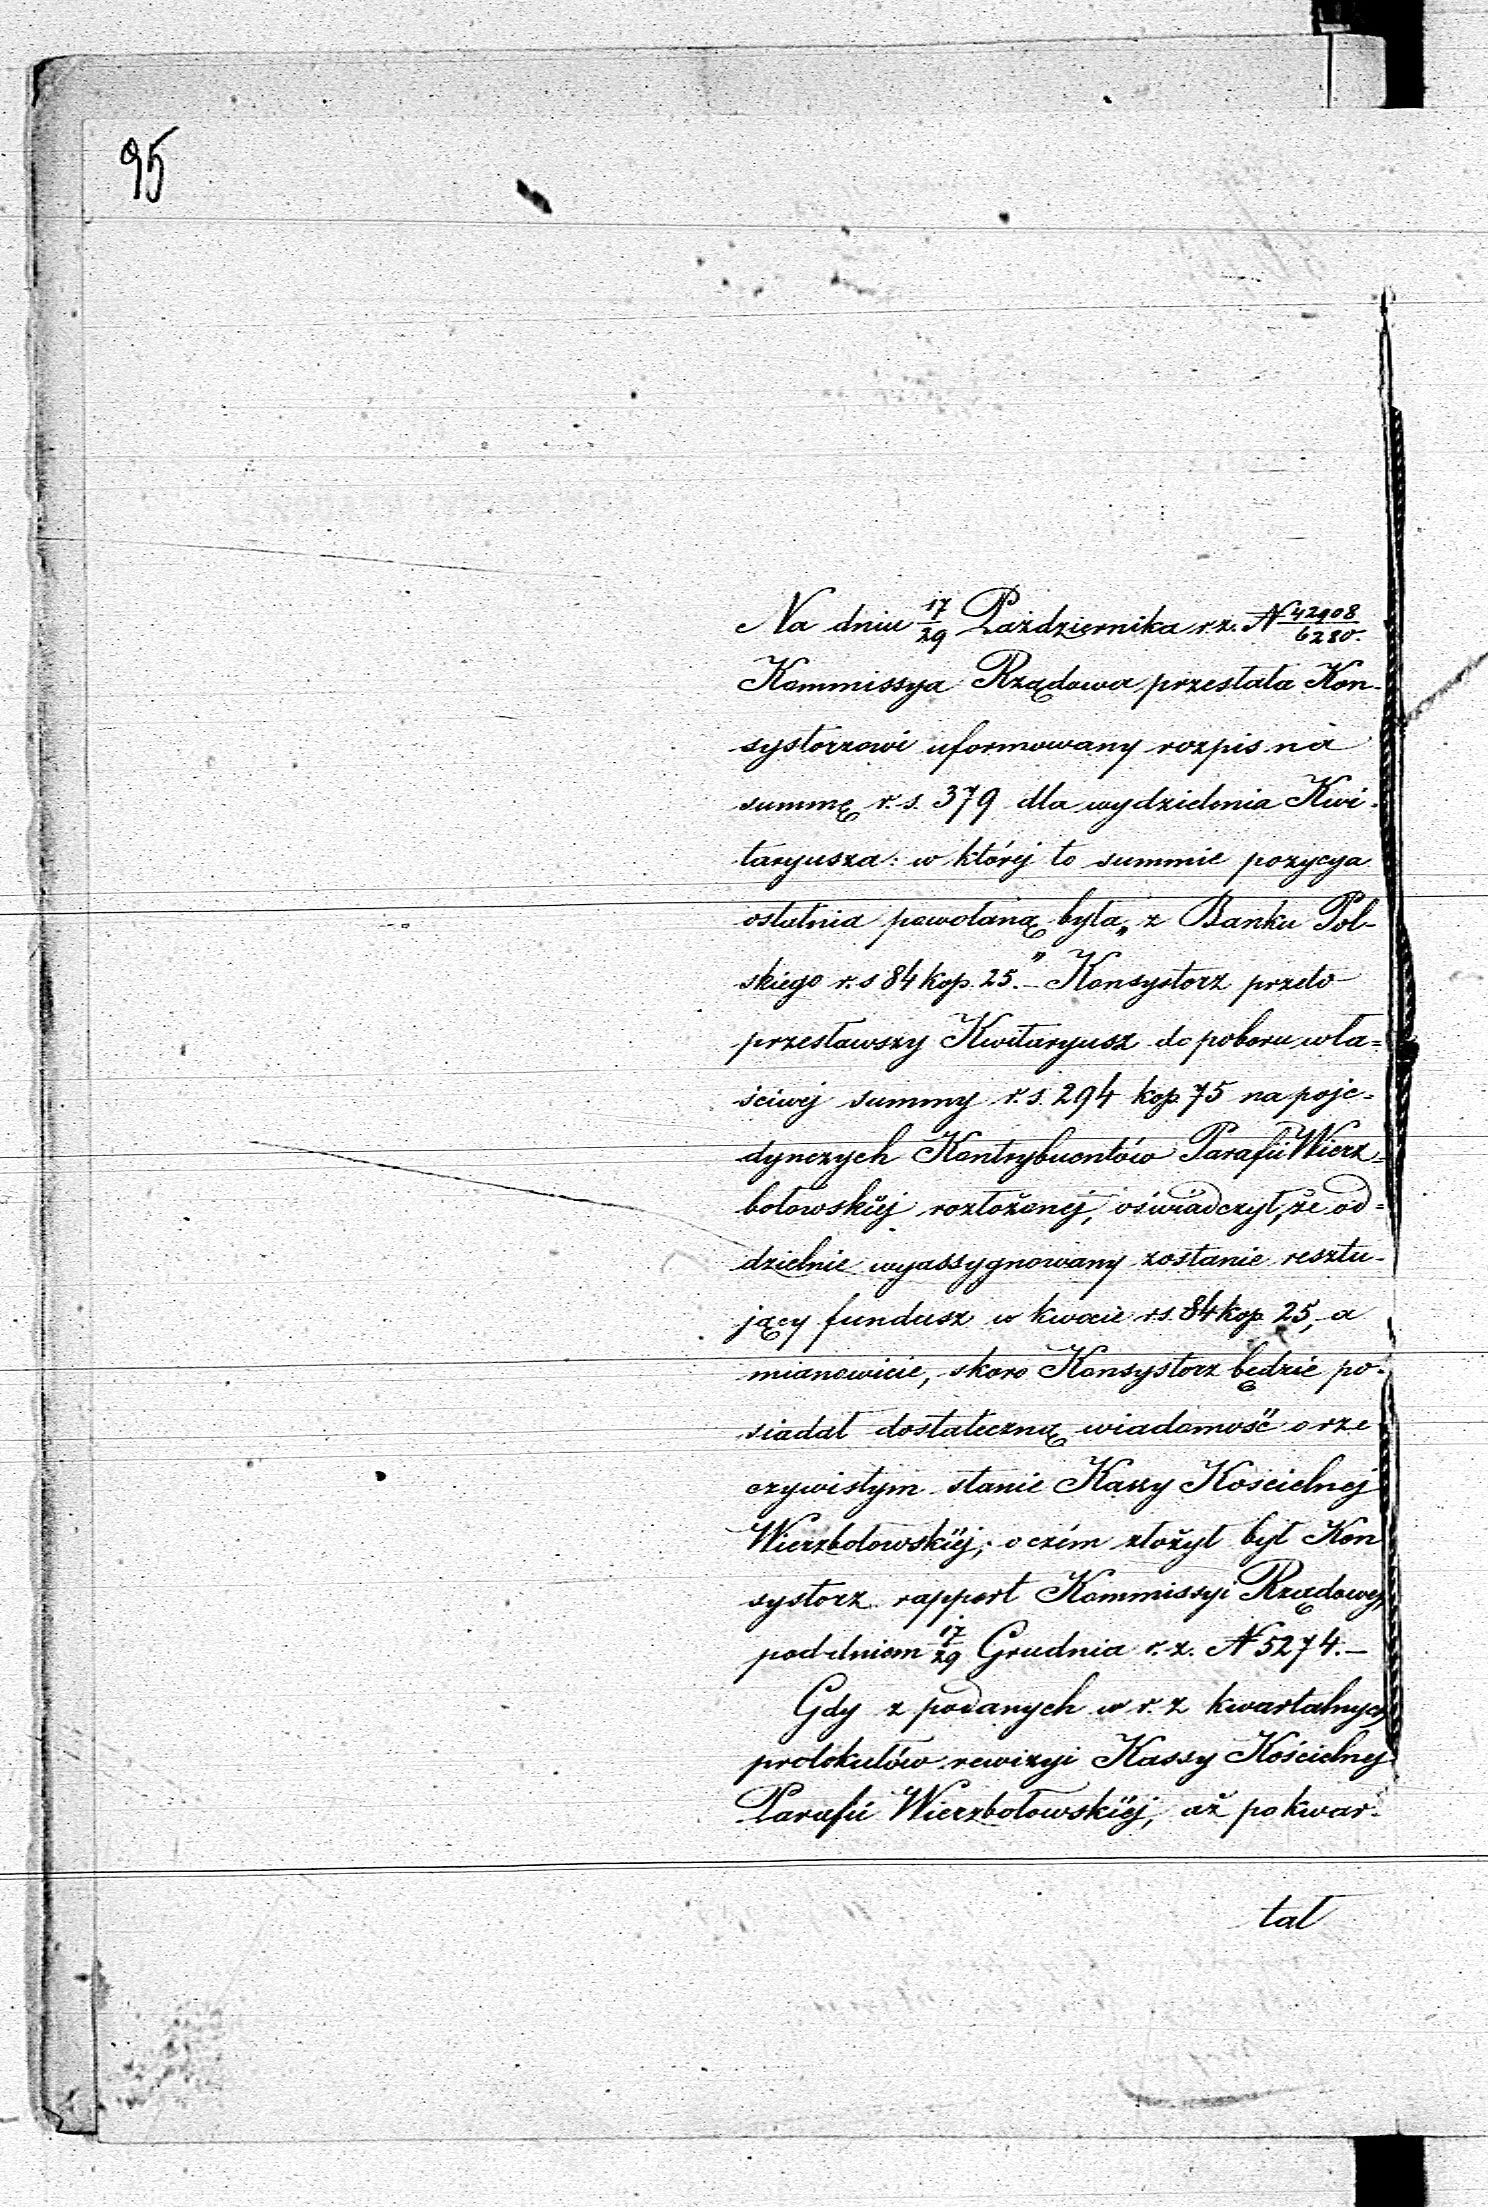 95
Na dniu 17/29 Października r.z. N 42908/6280.
Kommissya Rządowa przesłała Kon-
systorzowi uformowany rozpis na
summę r.s. 379 dla wydzielenia Kwi-
taryusza: w której to summie pozycya
ostatnia powołaną była „z Banku Pol-
skiego r.s 84 kop. 25.” – Konsystorz przeto
przesławszy Kwitaryusz do poboru wła=
ściwej summy r.s. 294 kop 75 na poje=
dynczych Kontrybuentów Parafii Wierz=
bołowskiéj rozłożonej, oświadczył, że od=
dzielnie wyassygnowany zostanie resztu-
jący fundusz w kwocie r.s. 84 kop 25, a
mianowicie, skoro Konsystorz będzie po-
siadał dostateczną wiadomość o rze
czywistym stanie Kassy Kościelnej
Wierzbołowskiéj; o czém złożył był Kon
systorz rapport Kommissyi Rządowej,
pod dniem 17/29 Grudnia r.z. N 5274. –
Gdy z podanych w r. z kwartalnych
protokułów rewizyi Kassy Kościelnej
Parafii Wierzbołowskiéj, aż po kwar-
tał